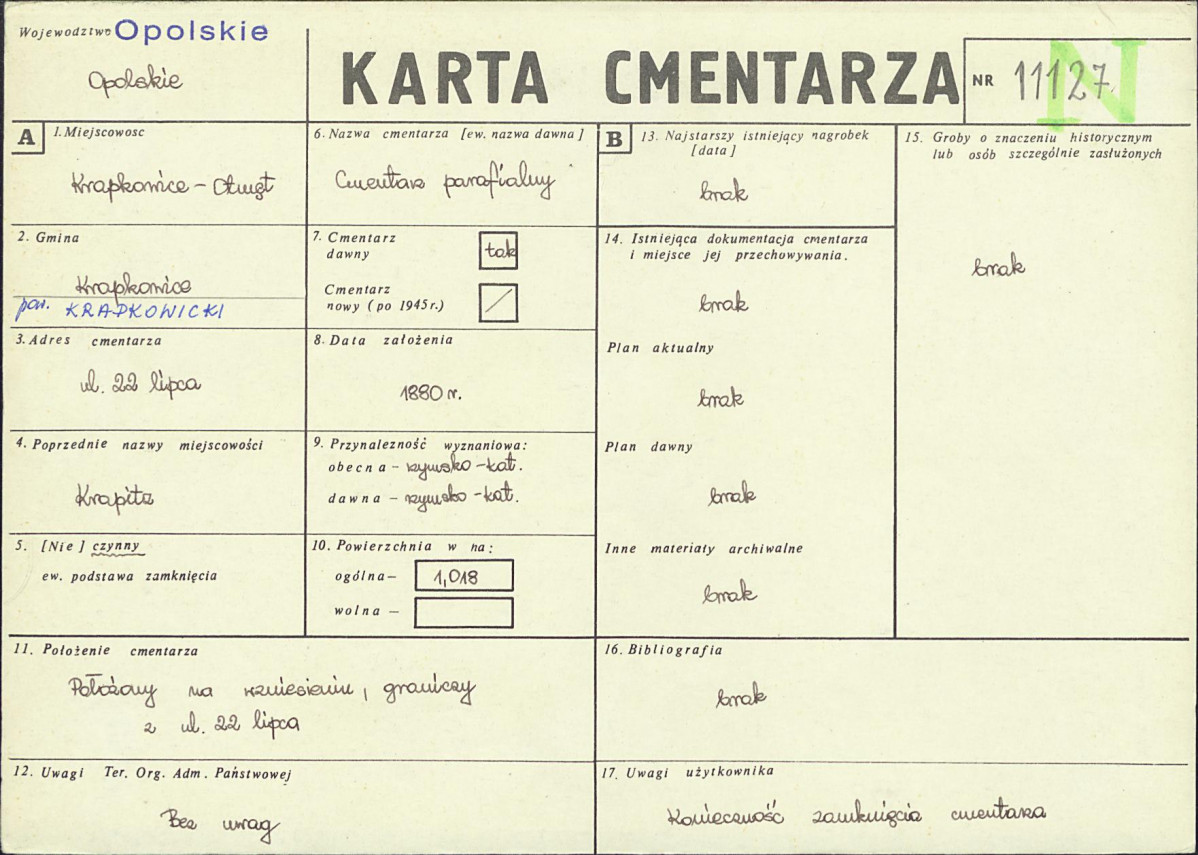 Województwo Opolskie
Opolskie
KARTA CMENTARZA
NR 11127
N
A
1. Miejscowosc
Krapkowice - Otmęt
2. Gmina
Krapkowice
pow. KRAPKOWICKI
3. Adres cmentarza
ul. 22 lipca
4. Poprzednie nazwy miejscowości
Krapitz
5. [Nie] czynny
ew. podstawa zamknięcia
6. Nazwa cmentarza [ew. nazwa dawna]
Cmentarz parafialny
7. Cmentarz
dawny tak
Cmentarz
nowy (po 1945 r.) /
8. Data założenia
1880 r.
9. Przynalezność wyznaniowa:
obecna - rzymsko-kat.
dawna - rzymsko-kat.
10. Powierzchnia w ha:
ogólna - 1,018
wolna -
11. Położenie cmentarza
Położony na wzniesieniu, graniczy
z ul. 22 lipca
12. Uwagi Ter. Org. Adm. Państwowej
Bez uwag
B
13. Najstarszy istniejący nagrobek
[data]
brak
14. Istniejąca dokumentacja cmentarza
i miejsce jej przechowywania.
brak
Plan aktualny
brak
Plan dawny
brak
Inne materiały archiwalne
brak
15. Groby o znaczeniu historycznym
lub osób szczególnie zasłużonych
brak
16. Bibliografia
brak
17. Uwagi użytkownika
Konieczność zamknięcia cmentarza